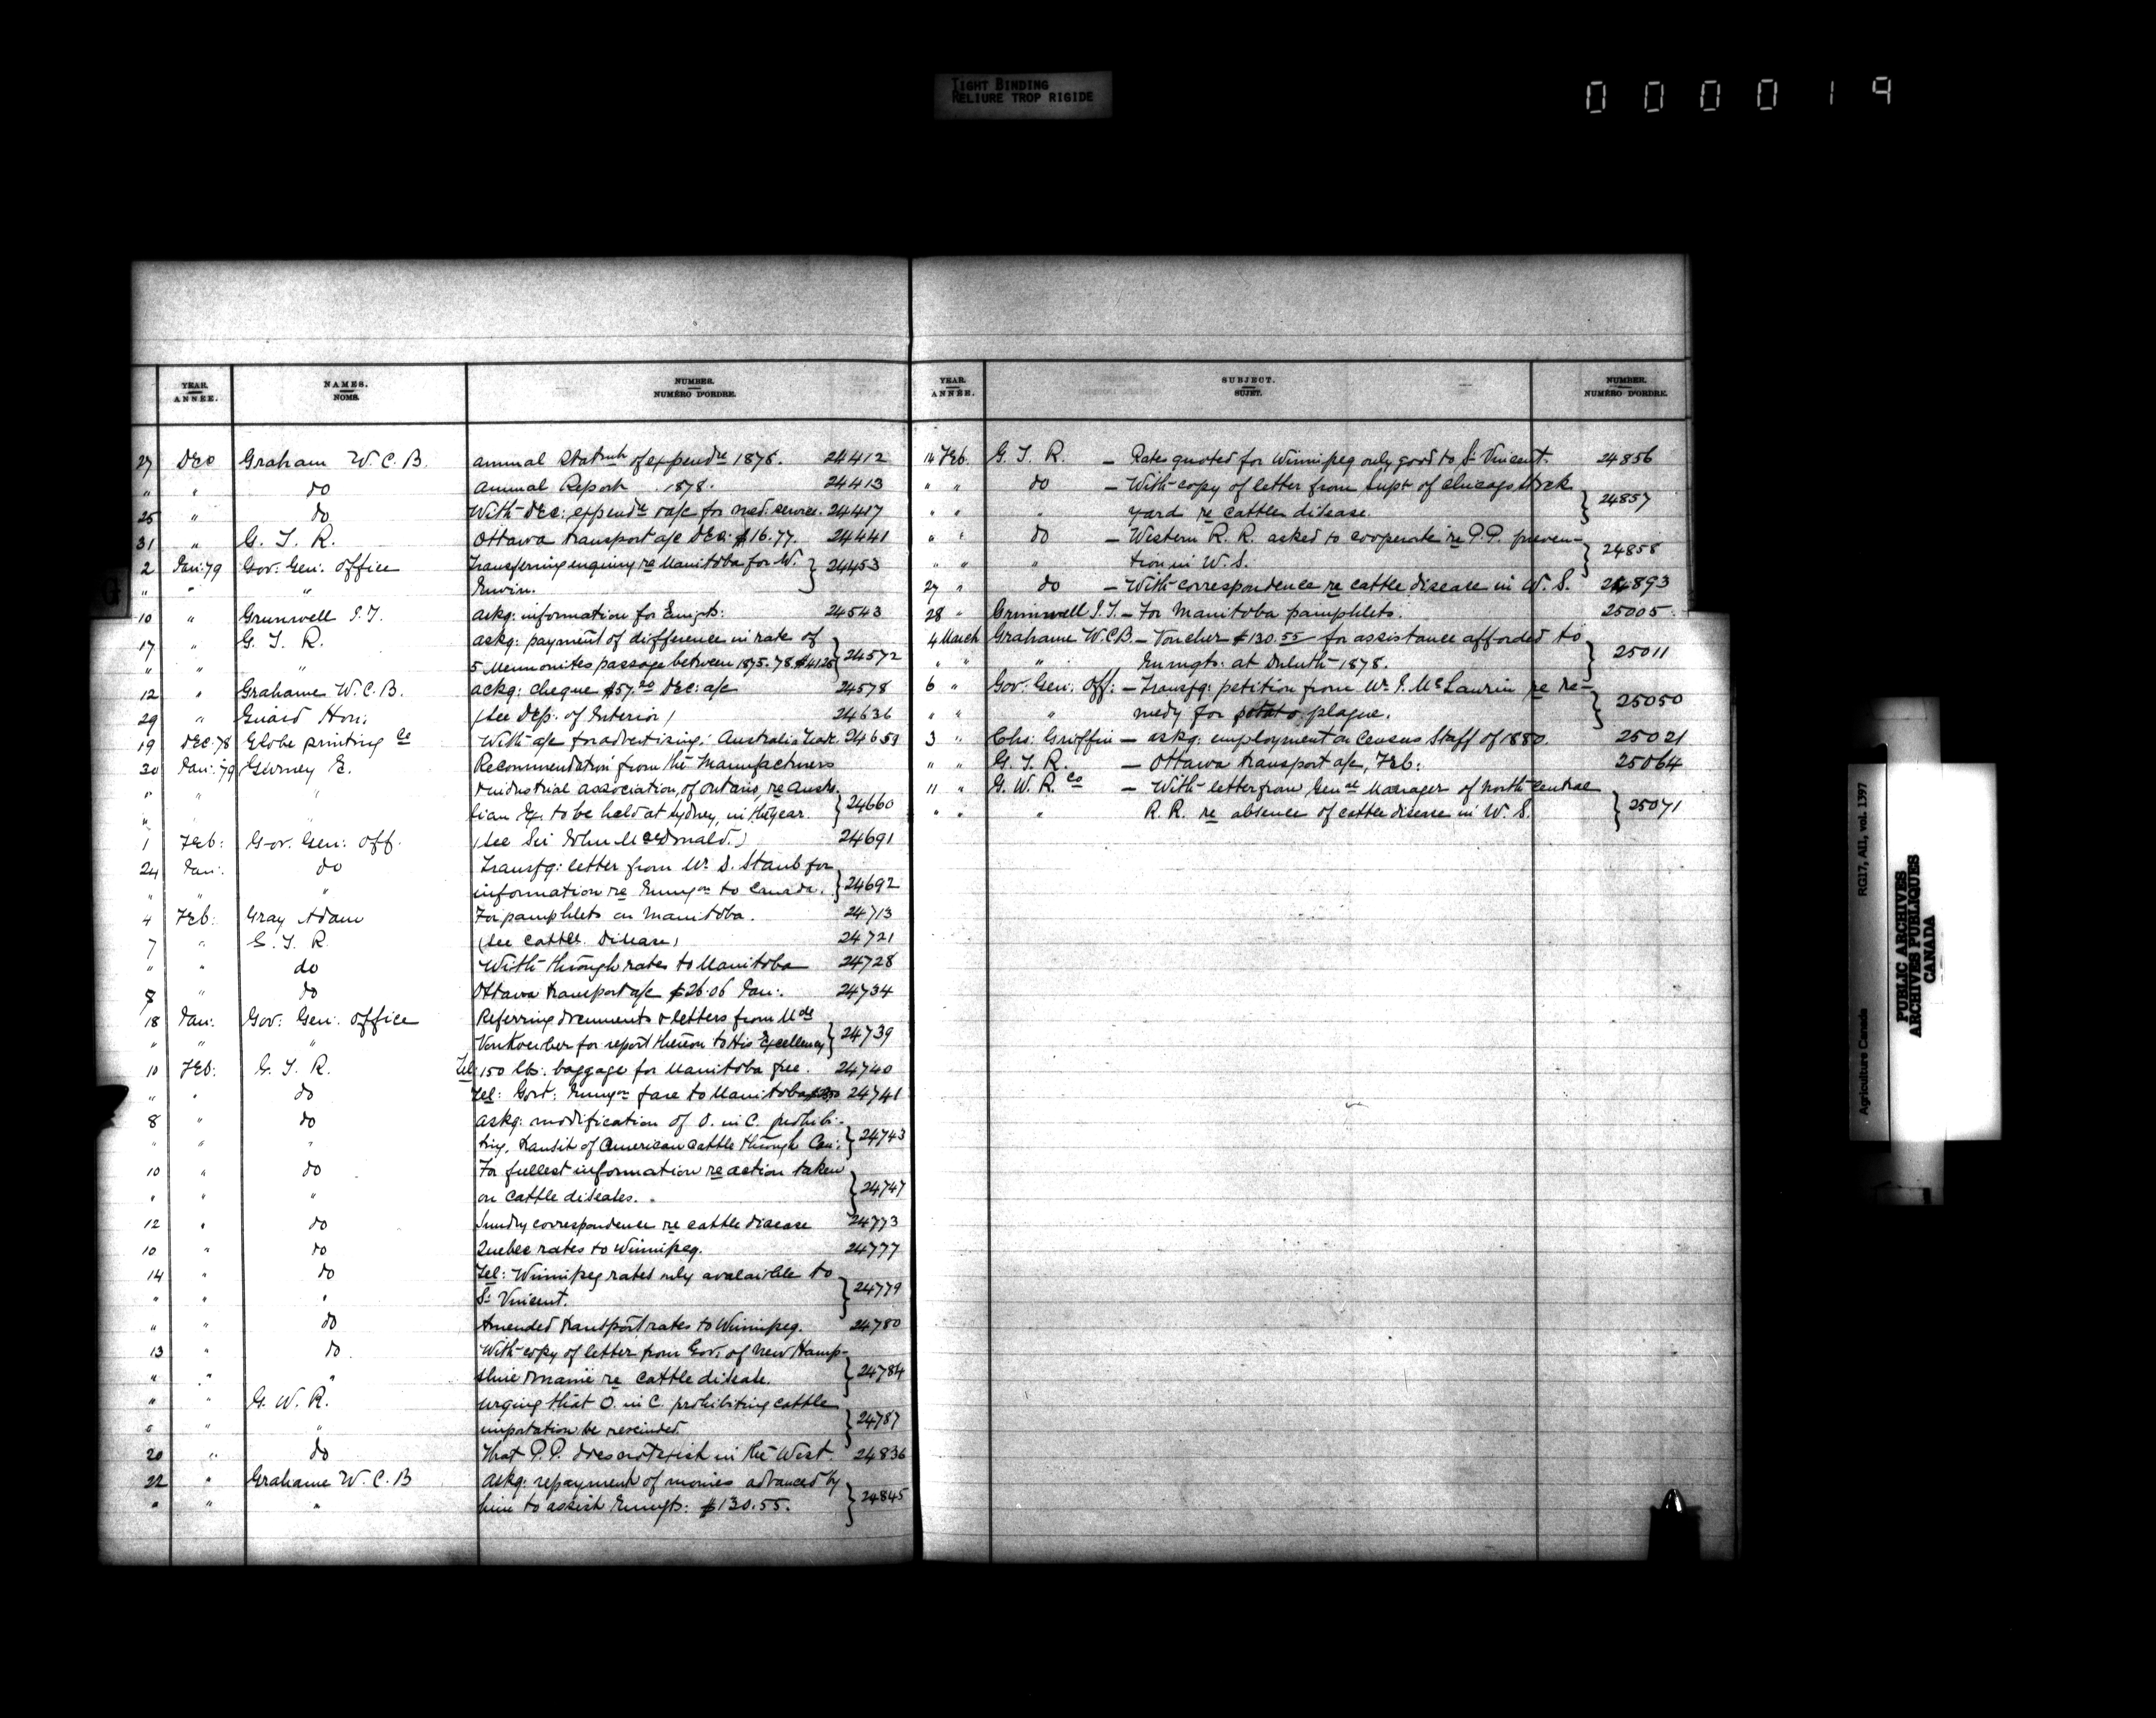 TIGHT BINDING
RELIURE TROP RIGIDE
000019
YEAR. ANNÉE. NAMES. NOMS. NUMBER. NUMÉRO D'ORDRE.
27 Dec Graham W. C. B. Annual Statmt of expendre 1878. 24412
" " do Annual Report 1878. 24413
25 " do With Dec: expendre a/c for med: service. 24417
31 " G. T. R. Ottawa transport a/c Dec: $16.77. 24441
2 Jan: 79 Gov: Gen: Office Transferring enquiry re Manitoba for W. } 24453
" " " Erwin.
10 " Grunwell I. T. Askg: information for Emigts: 24543
17 " G. T. R. Askg: payment of difference in rate of } 24572
" " " 5 Mennonites passage between 1875.78 $41.25
12 " Grahame W. C. B. Ackg: cheque $57.20 Dec: a/c 24578
29 " Guard Hon: (See Dep: of Interior) 24636
19 Dec. 78 Globe printing Co With a/c for advertizing: 24659
30 Jan: 79 Gurney E. Recommendation from the Manufacturers
" " " & industrial association, of Ontario, re Austra- } 24660
" lian Ex. to be held at Sydney, in this year.
1 Feb: Gov. Gen: Off. (See Sir John McDonald.) 24691
24 Jan: do Transfg: letter from Mr. D. Staub for } 24692
" " " information re Emigon to Canada.
4 Feb: Gray Adam For pamphlets on Manitoba. 24713
7 " G. T. R. (See Cattle Disease) 24721
" " do With through rates to Manitoba 24728
8 " do Ottawa transport a/c $26.06 Jan: 24734
18 Jan: Gov: Gen: Office Referring documents & letters from Mde } 24739
" " " Von Koerber for report thereon to His Excellency
10 Feb: G. T. R. Tel: 150 lbs: baggage for Manitoba free. 24740
" " do Tel: Govt: Emigon fare to Manitoba 24741
8 " do Askg: modification of O. in C. prohibi- } 24743
" " " ting, transit of American cattle through Can:
10 " do For fullest information re action taken } 24747
" " " on cattle diseases.
12 " do Sundry correspondence re cattle disease 24773
10 " do Quebec rates to Winnipeg. 24777
14 " do Tel: Winnipeg rates only avalaible to } 24779
" " " St Vincent.
" " do Amended transport rates to Winnipeg. 24780
13 " do With copy of letter from Gov: of New Hamp- } 24784
" " " shire & Maine re cattle disease.
" " G. W. R. Urging that O. in C. prohibiting cattle } 24787
" " " importation be rescinded.
20 " do That P. P. does not exist in the West. 24836
22 " Grahame W. C. B Askg: repayment of monies advanced by } 24845
" " " him to assist Emigts: $130.55.
YEAR. ANNÉE. SUBJECT. SUJET. NUMBER. NUMÉRO D'ORDRE.
14 Feb. G. T. R. – Rates quoted for Winnipeg only good to St Vincent. 24856
" " do – With copy of letter from Supt of Chicago Stock } 24857
" " " yard re cattle disease.
" " do – Western R. R. asked to cooperate re P.P. preven- } 24858
" " " tion in W. S.
27 " do – With correspondence re cattle disease in W. S. 24893
28 " Grunwell I. T. – For Manitoba pamphlets. 25005
4 March Grahame W.C.B. – Voucher $130.55 for assistance afforded to } 25011
" " " Emigts: at Duluth 1878.
6 " Gov: Gen: Off: – Transfg: petition from Mr. J. McLaurin re re- } 25050
" " " medy for potato plague.
3 " Chs: Griffin – Askg: employment on Census Staff of 1880. 25021
" " G. T. R. – Ottawa transport a/c, Feb: 25064
11 " G. W. R. Co – With letter from Genal Manager of North Central } 25071
" " " R. R. re absence of cattle disease in W. S.
Agriculture Canada RG17, AII, vol. 1397
PUBLIC ARCHIVES
ARCHIVES PUBLIQUES
CANADA